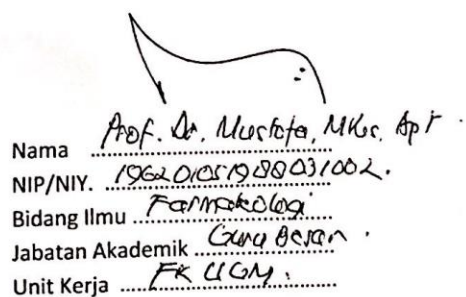 Nama Prof. Dr. Mustofa, MKes, Apt.
NIP/NIY. 196201051988031002.
Bidang Ilmu Farmakologi
Jabatan Akademik Guru Besar.
Unit Kerja FK UGM.